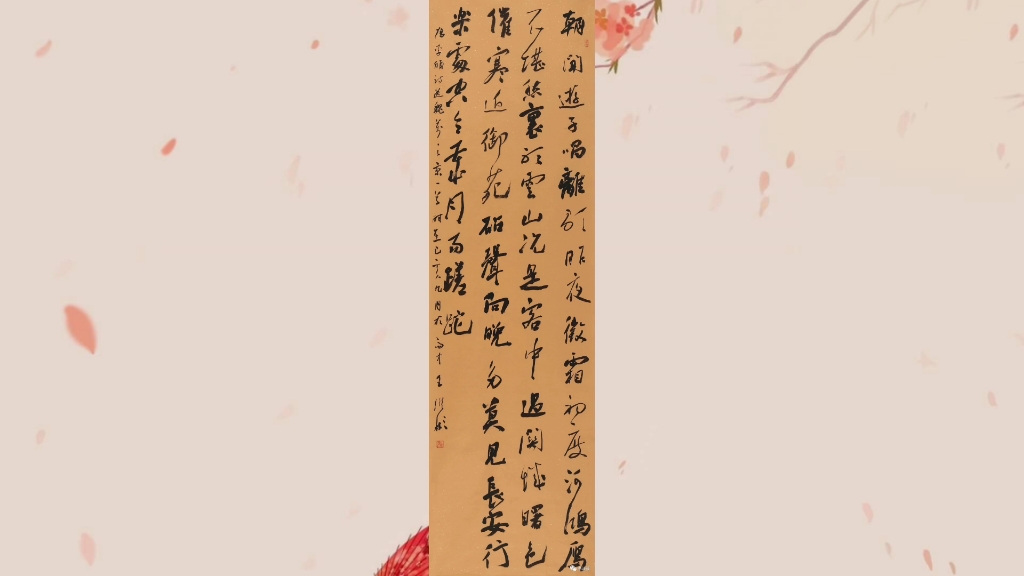 朝聞遊子唱離歌昨夜微霜初度河鴻鴈
不堪愁裏聽雲山況是客中過關城曙色
催寒近御苑砧聲向晚多莫見長安行
樂處空令歲月易蹉跎
唐李頎詩送魏萬之京一首